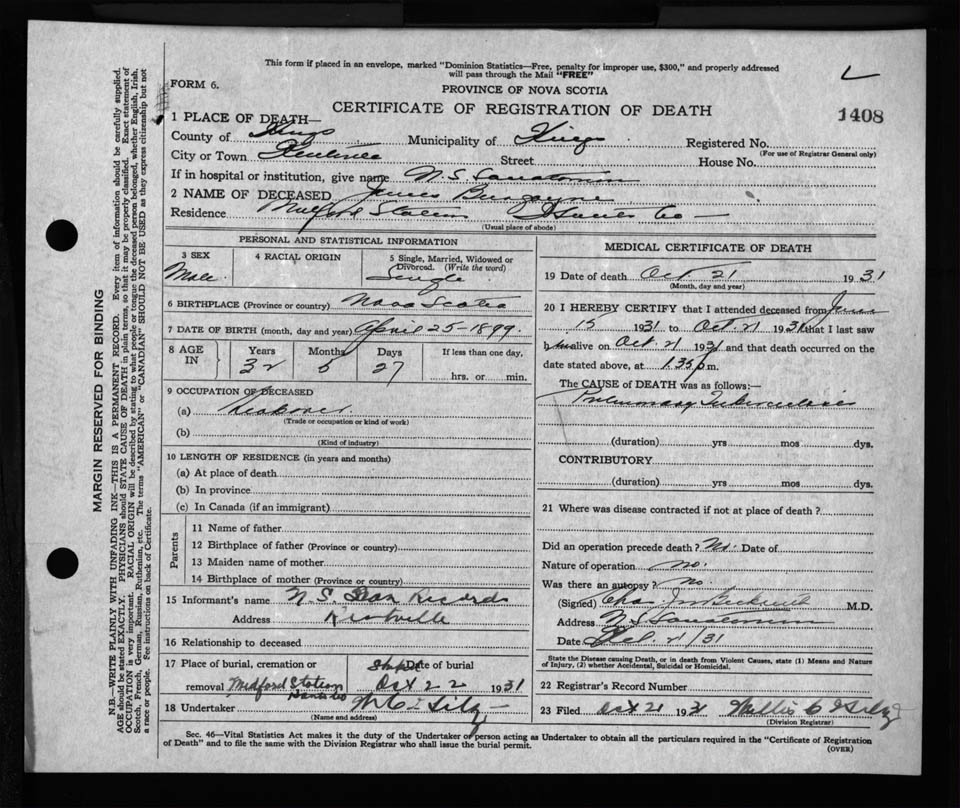 This form if placed in an envelope, marked "Dominion Statistics—Free, penalty for improper use, $300," and properly addressed
will pass through the Mail "FREE"
FORM 6.
PROVINCE OF NOVA SCOTIA
CERTIFICATE OF REGISTRATION OF DEATH
1408
1 PLACE OF DEATH—
County of Kings Municipality of Kings Registered No.
(For use of Registrar General only)
City or Town Kentville Street House No.
If in hospital or institution, give name N.S. Sanatorium
2 NAME OF DECEASED James Burgoyne
Residence Milford Station Hants Co —
(Usual place of abode)
PERSONAL AND STATISTICAL INFORMATION
3 SEX 4 RACIAL ORIGIN 5 Single, Married, Widowed or Divorced. (Write the word)
Male Single
6 BIRTHPLACE (Province or country) Nova Scotia
7 DATE OF BIRTH (month, day and year) April 25-1899.
8 AGE IN Years Months Days If less than one day,
32 5 27 hrs. or min.
9 OCCUPATION OF DECEASED
(a)
(Trade or occupation or kind of work)
(b)
(Kind of industry)
10 LENGTH OF RESIDENCE (in years and months)
(a) At place of death
(b) In province
(c) In Canada (if an immigrant)
Parents
11 Name of father
12 Birthplace of father (Province or country)
13 Maiden name of mother
14 Birthplace of mother (Province or country)
15 Informant's name N.S. San Records
Address Kentville
16 Relationship to deceased
17 Place of burial, cremation or Date of burial
removal Medford Station Hants Co Oct 22 1931
18 Undertaker
(Name and address)
MEDICAL CERTIFICATE OF DEATH
19 Date of death Oct 21 1931
(Month, day and year)
20 I HEREBY CERTIFY that I attended deceased from June
15 1931 to Oct. 21 1931 that I last saw
him alive on Oct 21 1931 and that death occurred on the
date stated above, at 1.35 p m.
The CAUSE of DEATH was as follows:—
Pulmonary Tuberculosis
(duration) yrs mos dys.
CONTRIBUTORY
(duration) yrs mos dys.
21 Where was disease contracted if not at place of death?
Did an operation precede death? No. Date of
Nature of operation no.
Was there an autopsy? no.
(Signed) Chas M.D.
Address N.S. Sanatorium
Date Oct. 21/31
State the Disease causing Death, or in death from Violent Causes, state (1) Means and Nature
of Injury, (2) whether Accidental, Suicidal or Homicidal.
22 Registrar's Record Number
23 Filed Oct 21 1931 Willis C
(Division Registrar)
Sec. 46—Vital Statistics Act makes it the duty of the Undertaker or person acting as Undertaker to obtain all the particulars required in the "Certificate of Registration
of Death" and to file the same with the Division Registrar who shall issue the burial permit.
(OVER)
MARGIN RESERVED FOR BINDING
N.B.—WRITE PLAINLY WITH UNFADING INK—THIS IS A PERMANENT RECORD. Every item of information should be carefully supplied.
AGE should be stated EXACTLY. PHYSICIANS should STATE CAUSE OF DEATH in plain terms, so that it may be properly classified. Exact statement of
OCCUPATION is very important. RACIAL ORIGIN will be described by stating to what people or tongue the deceased person belonged, whether English, Irish,
Scotch, French, German, Russian, Ruthenian, etc. The terms "AMERICAN" or "CANADIAN" SHOULD NOT BE USED as they express citizenship but not
a race or people. See instructions on back of Certificate.